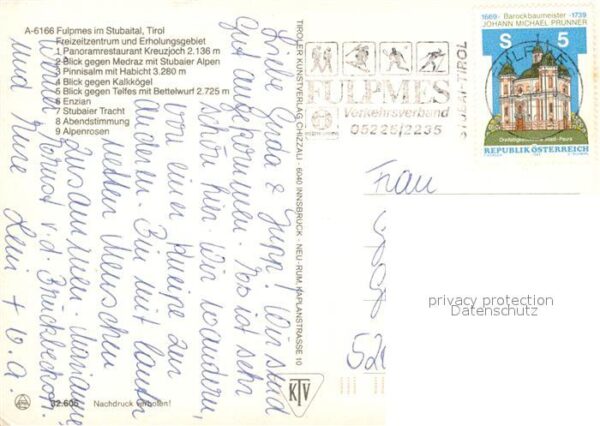 A-6166 Fulpmes im Stubaital, Tirol
Freizeitzentrum und Erholungsgebiet
1 Panoramarestaurant Kreuzjoch 2.136 m
2 Blick gegen Medraz mit Stubaier Alpen
3 Pinnisalm mit Habicht 3.280 m
4 Blick gegen Kalkkögel
5 Blick gegen Telfes mit Bettelwurf 2.725 m
6 Enzian
7 Stubaier Tracht
8 Abendstimmung
9 Alpenrosen
Liebe Gerda & Jupp! Wir sind
gut angekommen. Es ist sehr
schön hier. Wir wandern,
von einer Kneipe zur
anderen. Bin mit lauter
netten Menschen
zusammen. Marianne
Ernst v. d. Brück
und
Leni + V. a.
32.605 Nachdruck verboten!
TIROLER KUNSTVERLAG CHIZZALI · 6040 INNSBRUCK · NEU-RUM, KAPLANSTRASSE 10
KTV
FULPMES
Verkehrsverband
05225/2235
TIROL
1669 - Barockbaumeister - 1739
JOHANN MICHAEL PRUNNER
S 5
REPUBLIK ÖSTERREICH
Frau
52
privacy protection
Datenschutz